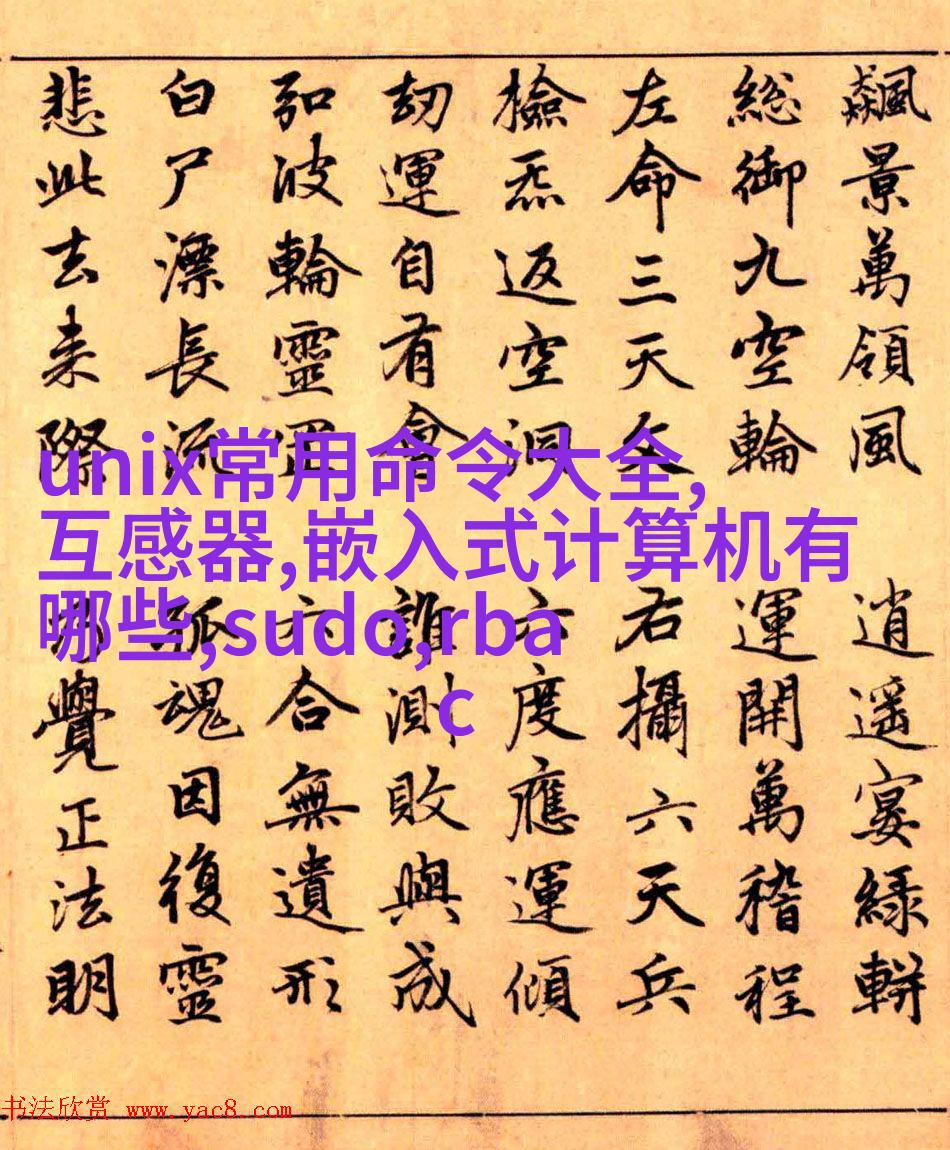 飆景萬領風 逍遥宴緑軿
総御九空輪 運開萬稽程
左命三天 右攝六天兵
檢炁返空洞 六度應運傾
劫運自有會 誰測敗與成
波輪靈 六合無遺形
白尸漂長流 孤魂因復靈
悲此去来際 覺正法明
unix常用命令大全,
互感器,嵌入式计算机有
哪些,sudo,rba
c
书法欣赏 www.yac8.com